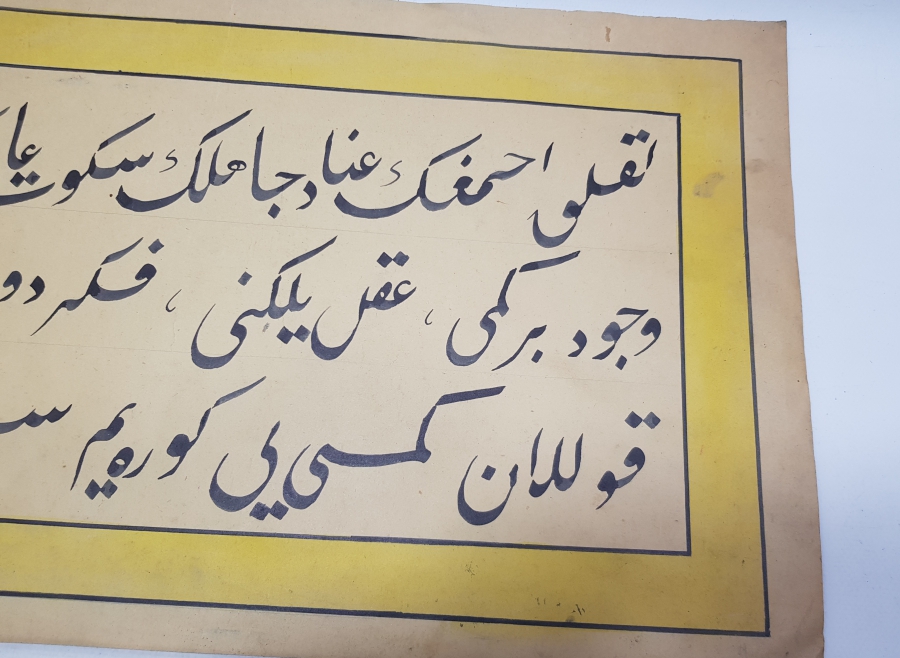 تقلق احمغك عناد جاهلك سكوت عا
وجود بر كمى ، عقل يلكنى ، فكر دو
قوللان كمسى يى كوره يم